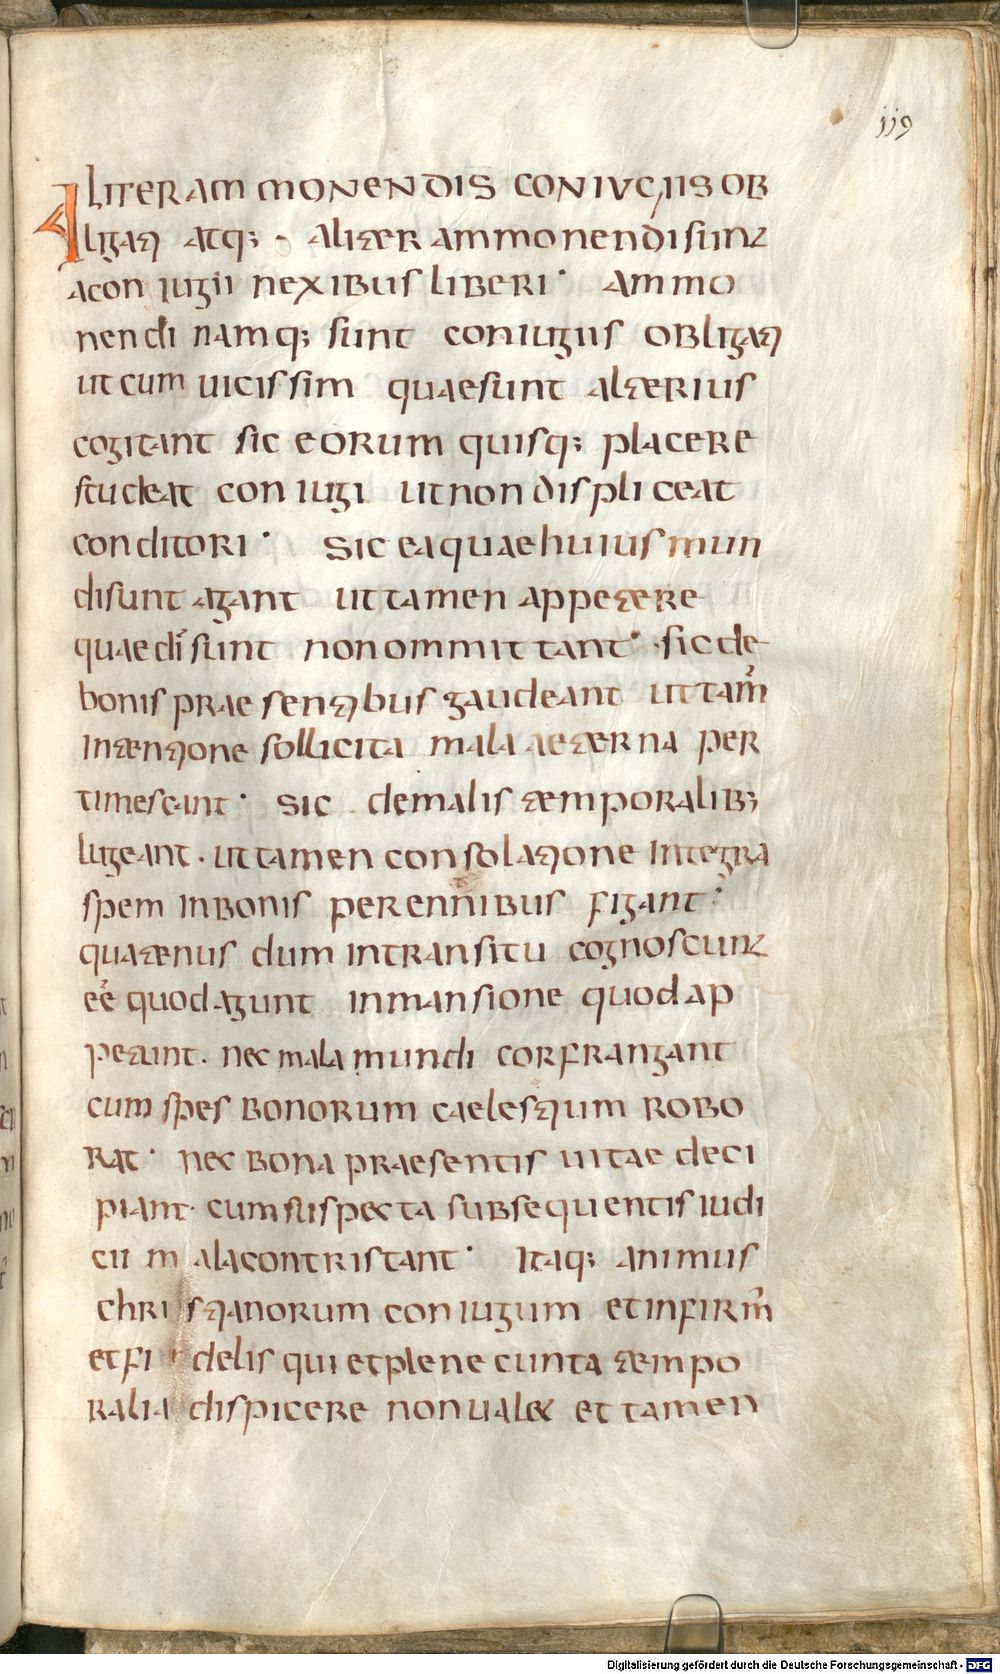 119
ALITER AMMONENDIS CONIUGIIS OB
ligati atq; · aliter ammonendi sunt
a coniugii nexibus liberi · Ammo
nendi namq; sunt coniugiis obligati
ut cum uicissim quae sunt alterius
cogitant sic eorum quisq; placere
studeat coniugi ut non displiceat
conditori · Sic ea quae huius mun
di sunt agant ut tamen appetere
quae dī sunt non ommittant · sic de
bonis praesentibus gaudeant ut tam̄
intentione sollicita mala aeterna per
timescant · sic de malis temporalib;
lugeant · ut tamen consolatione integra
spem in bonis perennibus figant ·
quatenus dum in transitu cognoscunt
eē quod agunt in mansione quod ap
petunt · nec mala mundi cor frangant
cum spes bonorum caelestium robo
rat · nec bona praesentis uitae deci
piant · cum suspecta subsequentis iudi
cii mala contristant · Itaq; animus
christianorum coniugum et infirm̄
et fidelis qui et plene cunta tempo
ralia dispicere non ualet et tamen
Digitalisierung gefördert durch die Deutsche Forschungsgemeinschaft - DFG